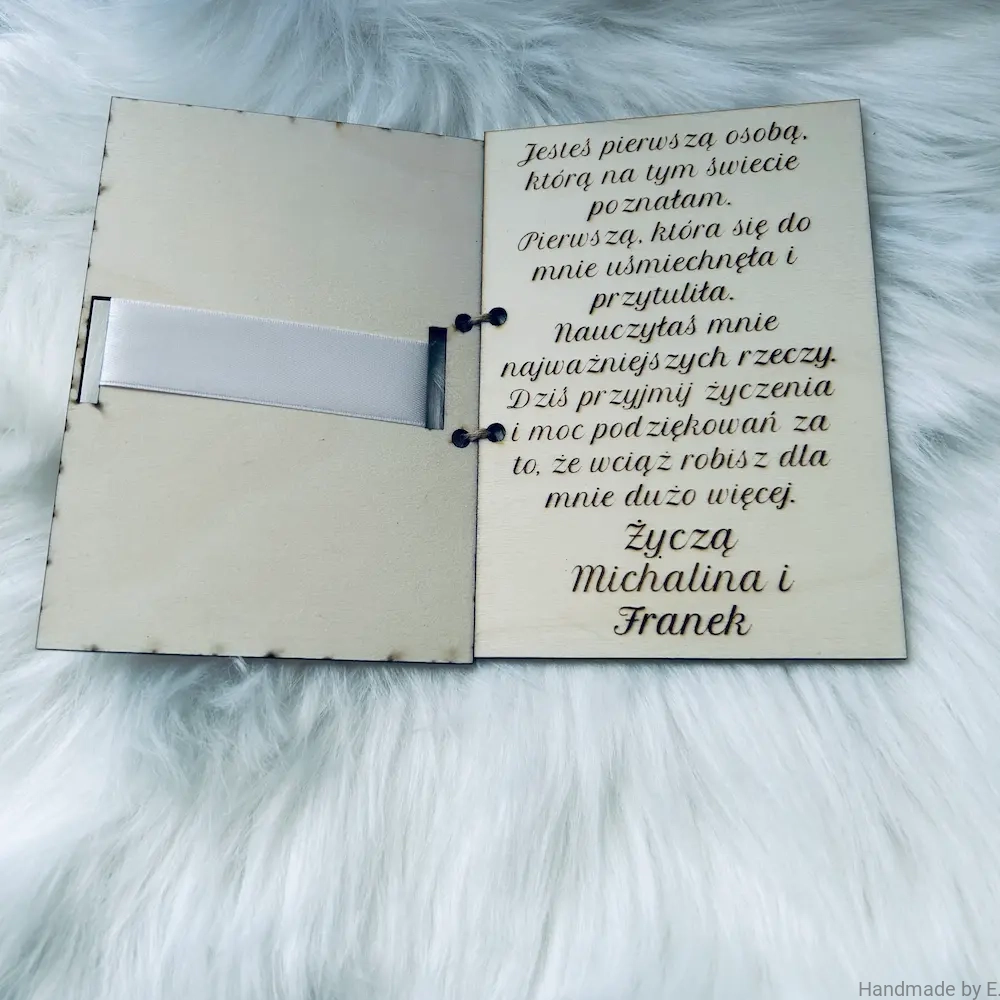 Jesteś pierwszą osobą,
którą na tym świecie
poznałam.
Pierwszą, która się do
mnie uśmiechnęła i
przytuliła.
Nauczyłaś mnie
najważniejszych rzeczy.
Dziś przyjmij życzenia
i moc podziękowań za
to, że wciąż robisz dla
mnie dużo więcej.
Życzą
Michalina i
Franek
Handmade by E.